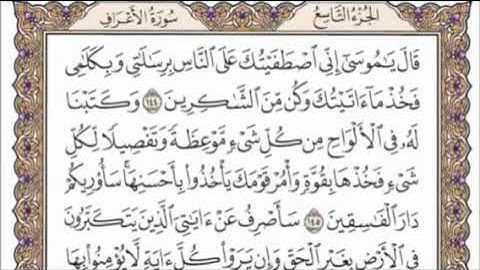 الجزء التاسع
سورة الأعراف
قَالَ يَٰمُوسَىٰٓ إِنِّي ٱصۡطَفَيۡتُكَ عَلَى ٱلنَّاسِ بِرِسَٰلَٰتِي وَبِكَلَٰمِي
فَخُذۡ مَآ ءَاتَيۡتُكَ وَكُن مِّنَ ٱلشَّٰكِرِينَ ١٤٤ وَكَتَبۡنَا
لَهُۥ فِي ٱلۡأَلۡوَاحِ مِن كُلِّ شَيۡءٖ مَّوۡعِظَةٗ وَتَفۡصِيلٗا لِّكُلِّ
شَيۡءٖ فَخُذۡهَا بِقُوَّةٖ وَأۡمُرۡ قَوۡمَكَ يَأۡخُذُواْ بِأَحۡسَنِهَاۚ سَأُوْرِيكُمۡ
دَارَ ٱلۡفَٰسِقِينَ ١٤٥ سَأَصۡرِفُ عَنۡ ءَايَٰتِيَ ٱلَّذِينَ يَتَكَبَّرُونَ
فِي ٱلۡأَرۡضِ بِغَيۡرِ ٱلۡحَقِّ وَإِن يَرَوۡاْ كُلَّ ءَايَةٖ لَّا يُؤۡمِنُواْ بِهَا